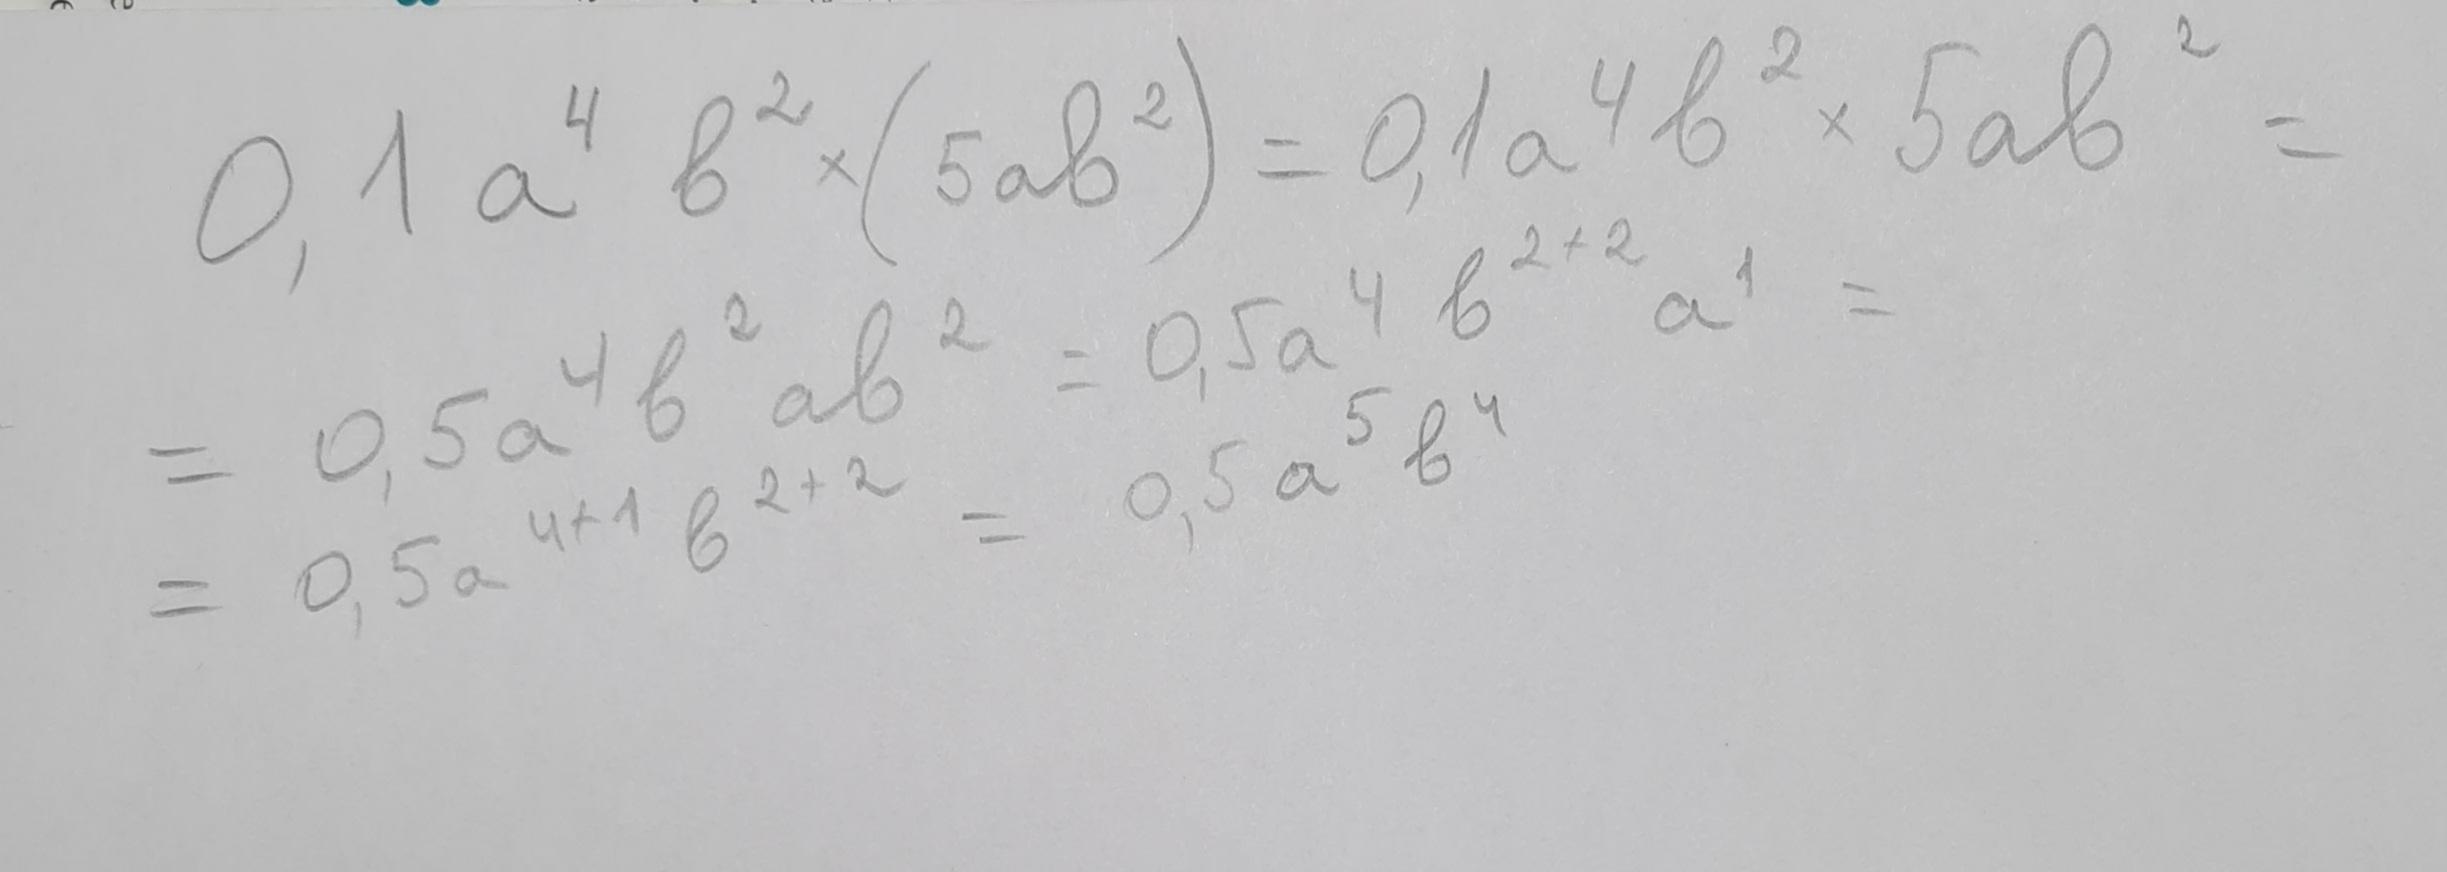 0,1a⁴b²×(5ab²)=0,1a⁴b²×5ab²=
=0,5a⁴b²ab²=0,5a⁴b²⁺²a¹=
=0,5a⁴⁺¹b²⁺²=0,5a⁵b⁴